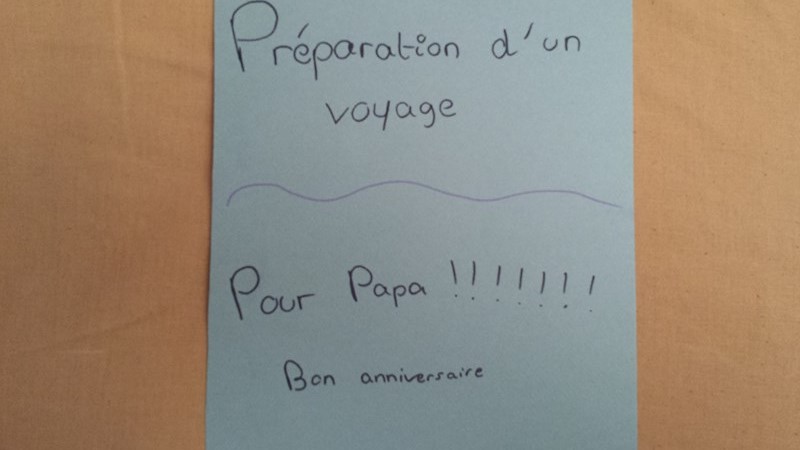 Préparation d'un
voyage
Pour Papa !!!!!!!
Bon anniversaire